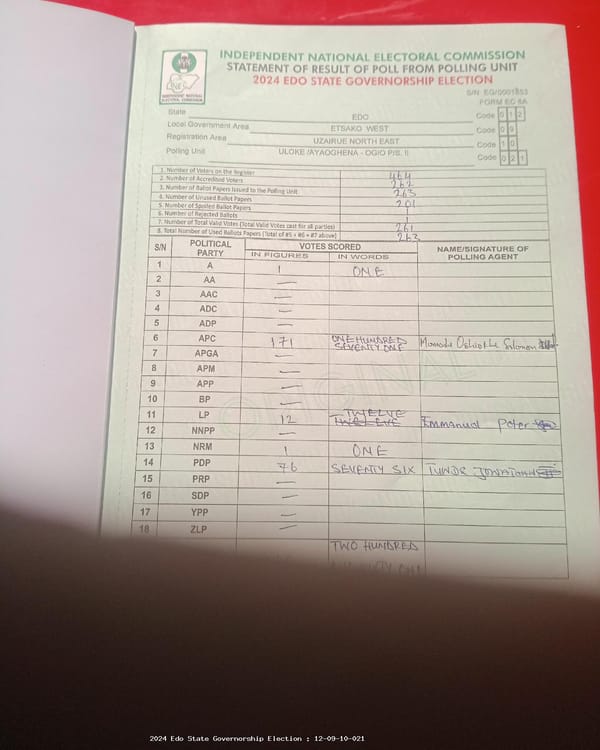 INDEPENDENT NATIONAL ELECTORAL COMMISSION
STATEMENT OF RESULT OF POLL FROM POLLING UNIT
2024 EDO STATE GOVERNORSHIP ELECTION
INDEPENDENT NATIONAL ELECTORAL COMMISSION
S/N EG/0001853
FORM EC 8A
State EDO Code 0 1 2
Local Government Area ETSAKO WEST Code 0 9
Registration Area UZAIRUE NORTH EAST Code 1 0
Polling Unit ULOKE /AYAOGHENA - OGIO P/S. II Code 0 2 1
1. Number of Voters on the Register 464
2. Number of Accredited Voters 262
3. Number of Ballot Papers Issued to the Polling Unit 263
4. Number of Unused Ballot Papers 201
5. Number of Spoiled Ballot Papers 1
6. Number of Rejected Ballots 1
7. Number of Total Valid Votes (Total Valid Votes cast for all parties) 261
8. Total Number of Used Ballots Papers (Total of #5 + #6 + #7 above) 263
S/N POLITICAL PARTY VOTES SCORED NAME/SIGNATURE OF POLLING AGENT
IN FIGURES IN WORDS
1 A 1 ONE
2 AA —
3 AAC —
4 ADC —
5 ADP —
6 APC 171 ONE HUNDRED SEVENTY ONE Solomon
7 APGA —
8 APM —
9 APP —
10 BP —
11 LP 12 TWELVE Emmanuel Peter
12 NNPP —
13 NRM 1 ONE
14 PDP 76 SEVENTY SIX TUNDE JONATHAN
15 PRP —
16 SDP —
17 YPP —
18 ZLP —
TWO HUNDRED
ORIGINAL
2024 Edo State Governorship Election : 12-09-10-021